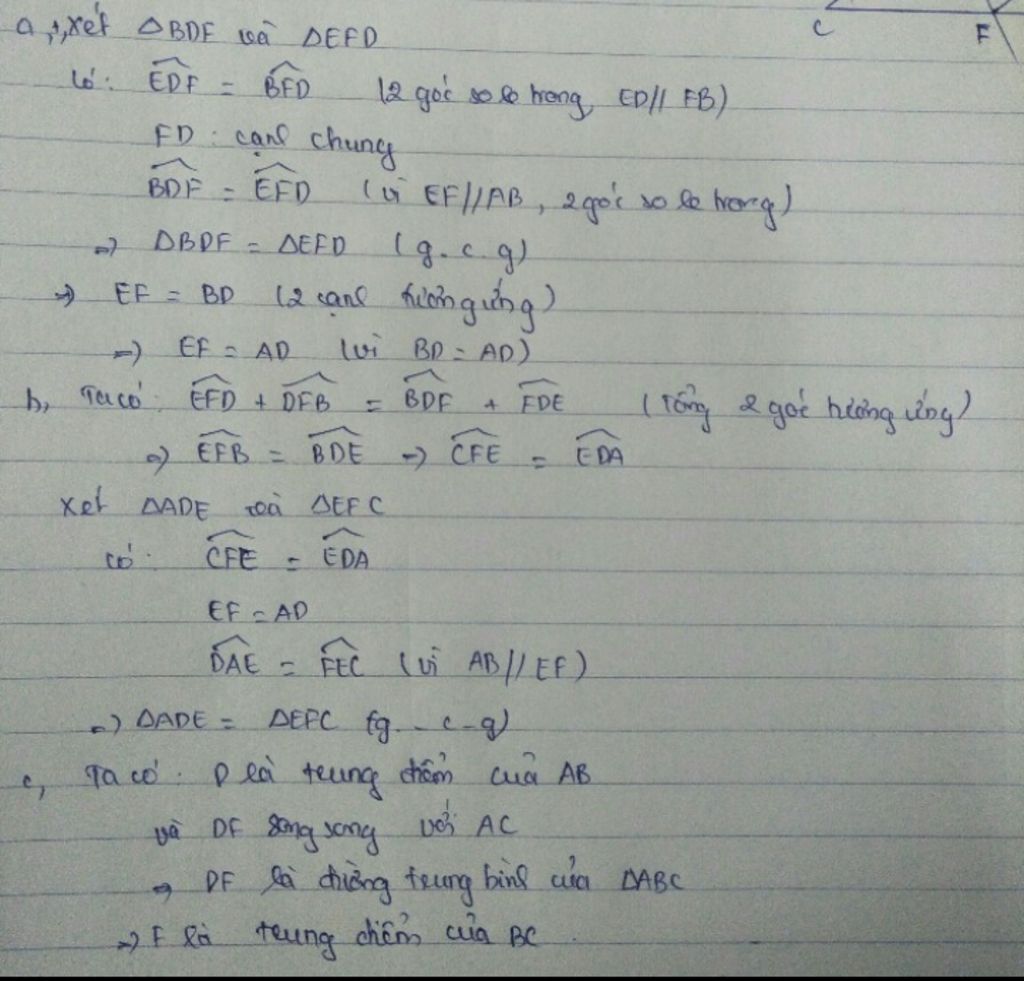 C F
a, +, xét ΔBDF và ΔEFD
Có: \widehat{EDF} = \widehat{BFD} (2 góc so le trong, ED // FB)
FD : cạnh chung
\widehat{BDF} = \widehat{EFD} (vì EF//AB, 2 góc so le trong)
=> ΔBDF = ΔEFD (g.c.g)
=> EF = BD (2 cạnh tương ứng)
=> EF = AD (vì BD = AD)
b, Ta có: \widehat{EFD} + \widehat{DFB} = \widehat{BDF} + \widehat{FDE} (Tổng 2 góc tương ứng)
=> \widehat{EFB} = \widehat{BDE} => \widehat{CFE} = \widehat{EDA}
Xét ΔADE và ΔEFC
có: \widehat{CFE} = \widehat{EDA}
EF = AD
\widehat{DAE} = \widehat{FEC} (vì AB // EF)
=> ΔADE = ΔEFC (g-c-g)
c, Ta có: D là trung điểm của AB
và DF song song với AC
=> DF là đường trung bình của ΔABC
=> F là trung điểm của BC.